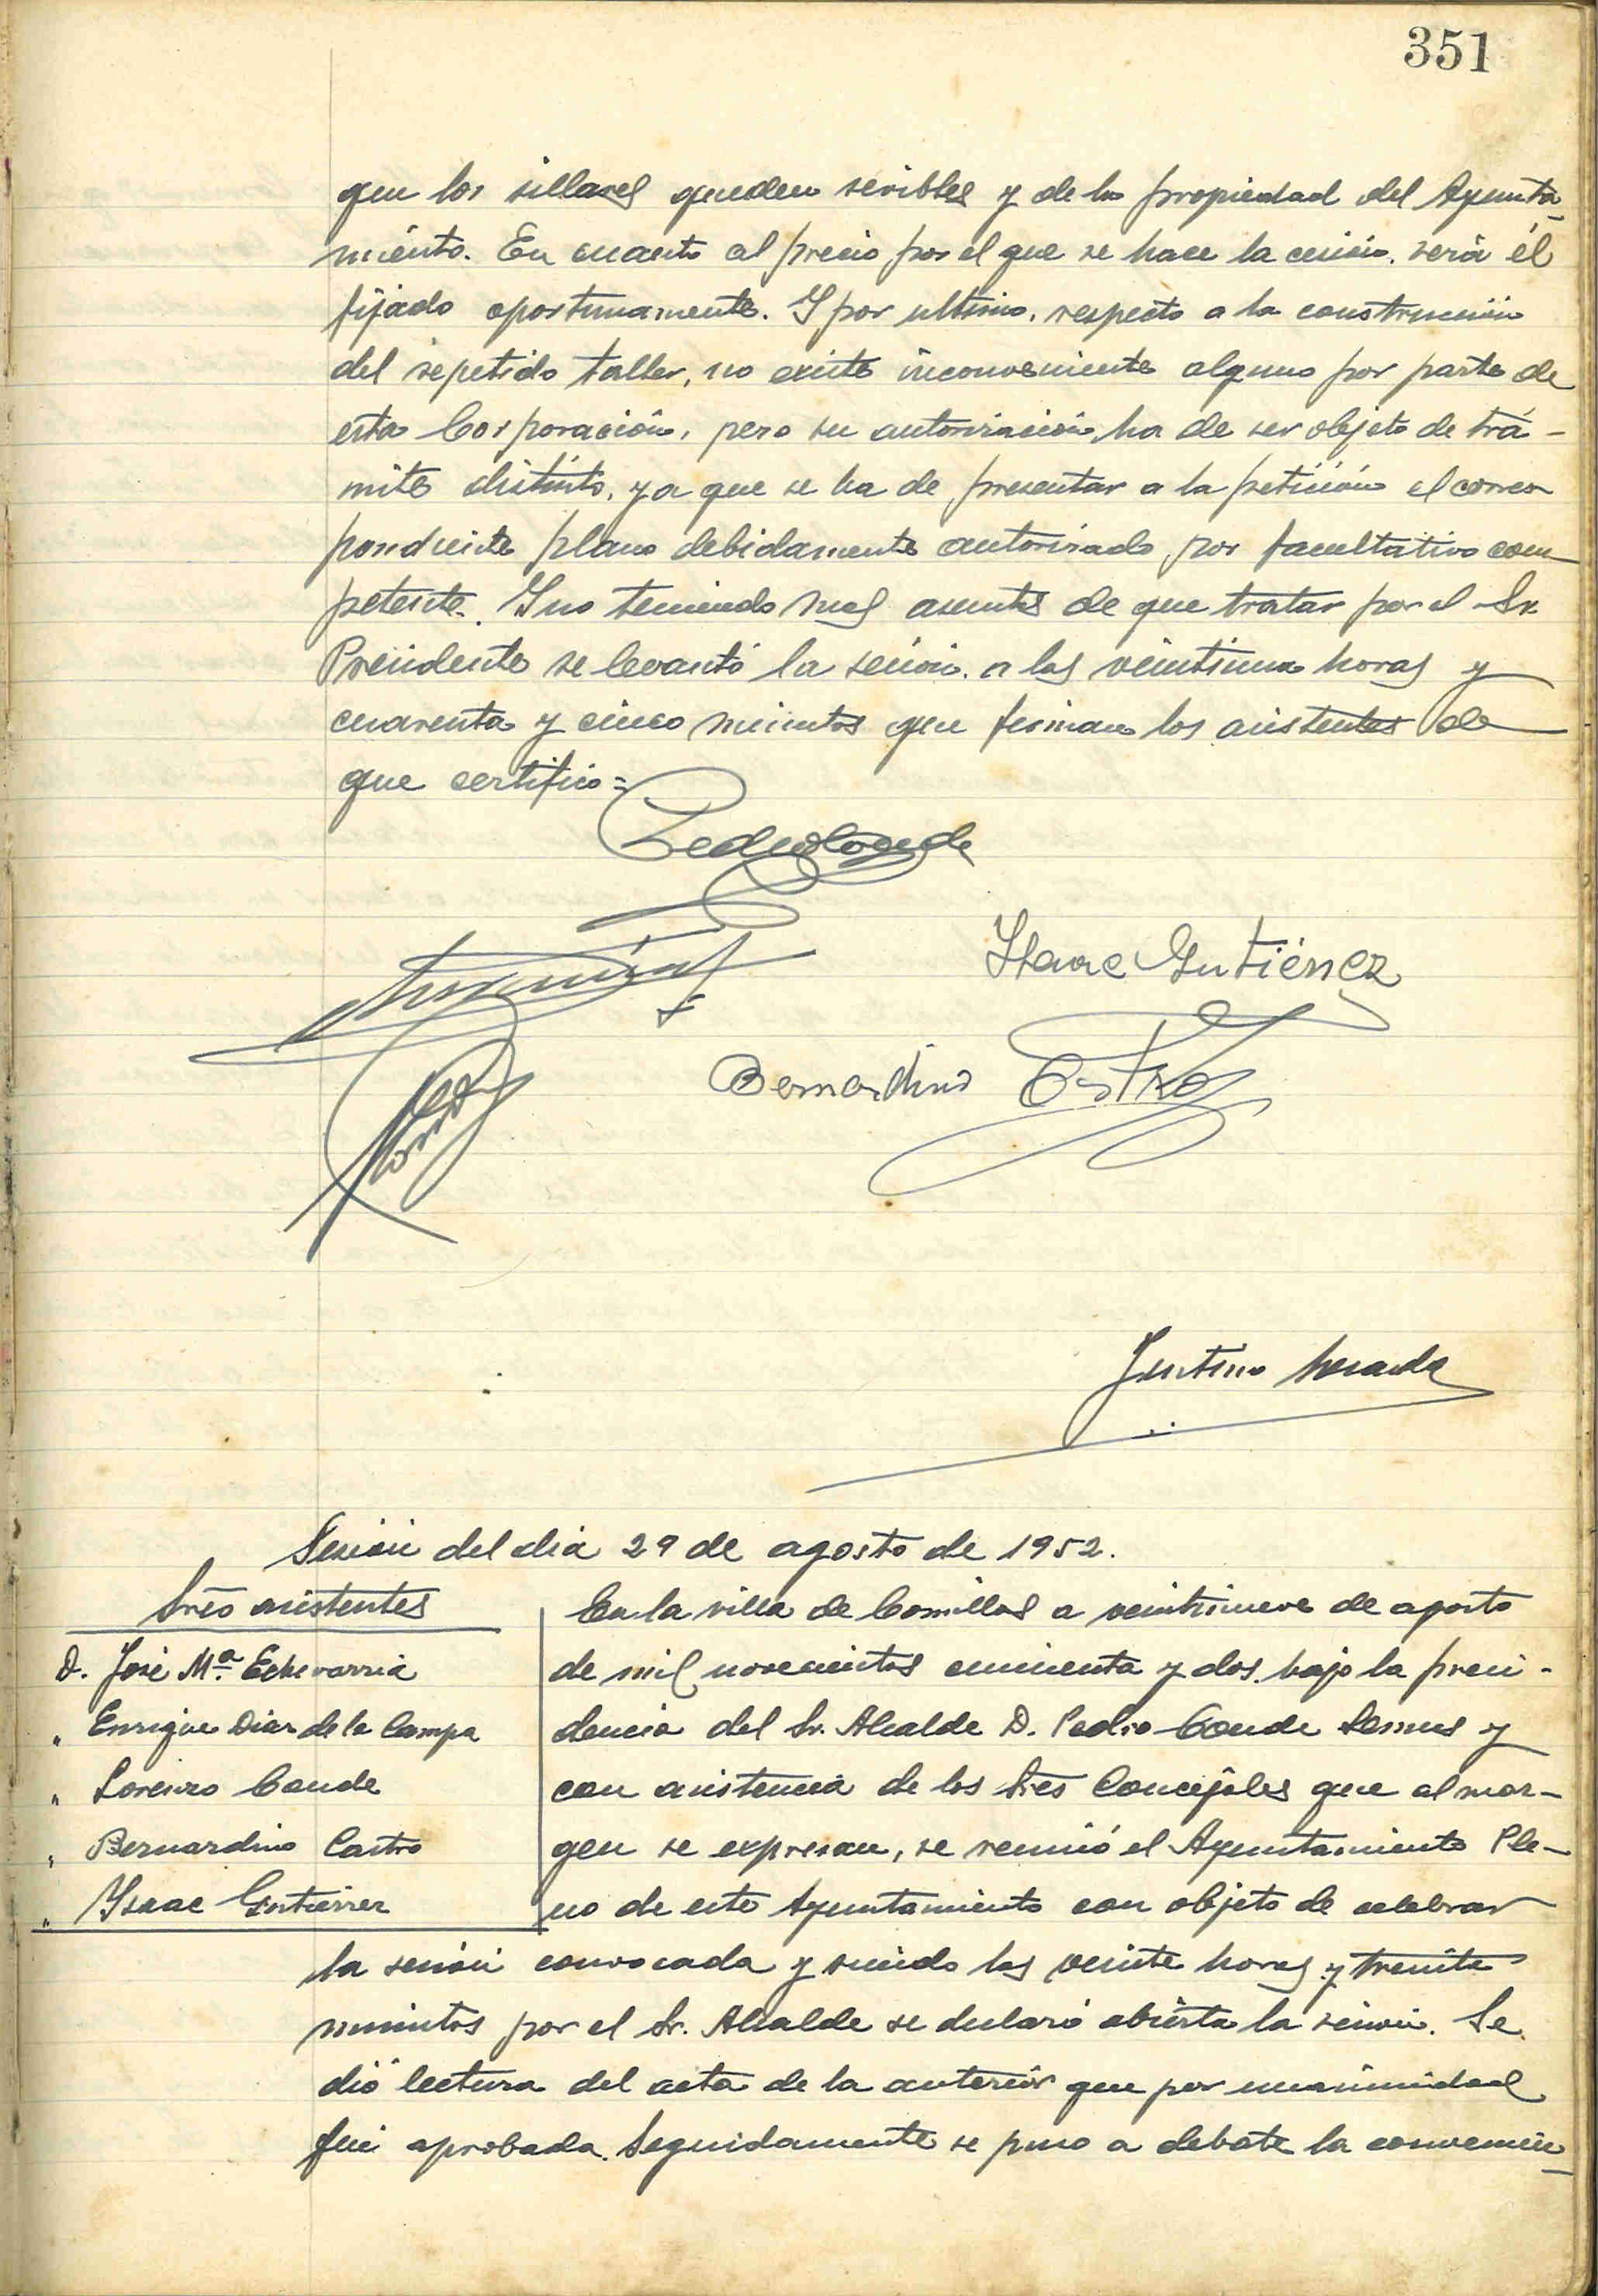 351
que los sillares queden servibles y de la propiedad del Ayunta-
miento. En cuanto al precio por el que se hace la cesión, será él
fijado oportunamente. Y por ultimo, respecto a la construcción
del repetido taller, no existe inconveniente alguno por parte de
esta Corporación, pero su autorización ha de ser objeto de trá-
mite distinto, ya que se ha de presentar a la petición el corres
pondiente plano debidamente autorizado por facultativo com-
petente. Y no teniendo mas asuntos de que tratar por el Sr.
Presidente se levantó la sesión a las veintiuna horas y
cuarenta y cinco minutos que firman los asistentes de
que certifico =
Pedro Conde
Isaac Gutiérrez
Bernardino Castro
Sesión del dia 29 de agosto de 1952.
Sres asistentes
D. José Mª Echevarria
" Enrique Diaz de la Campa
" Lorenzo Conde
" Bernardino Castro
" Ysaac Gutierrez
En la villa de Comillas a veintinueve de agosto
de mil novecientos cincuenta y dos, bajo la presi-
dencia del Sr. Alcalde D. Pedro Conde Lemus y
con asistencia de los Sres Concejales que al mar-
gen se expresan, se reunió el Ayuntamiento Ple-
no de este Ayuntamiento con objeto de celebrar
la sesión convocada y siendo las veinte horas y treinta
minutos por el Sr. Alcalde se declaró abierta la sesión. Se
dió lectura del acta de la anterior que por unanimidad
fué aprobada. Seguidamente se puso a debate la convenien-